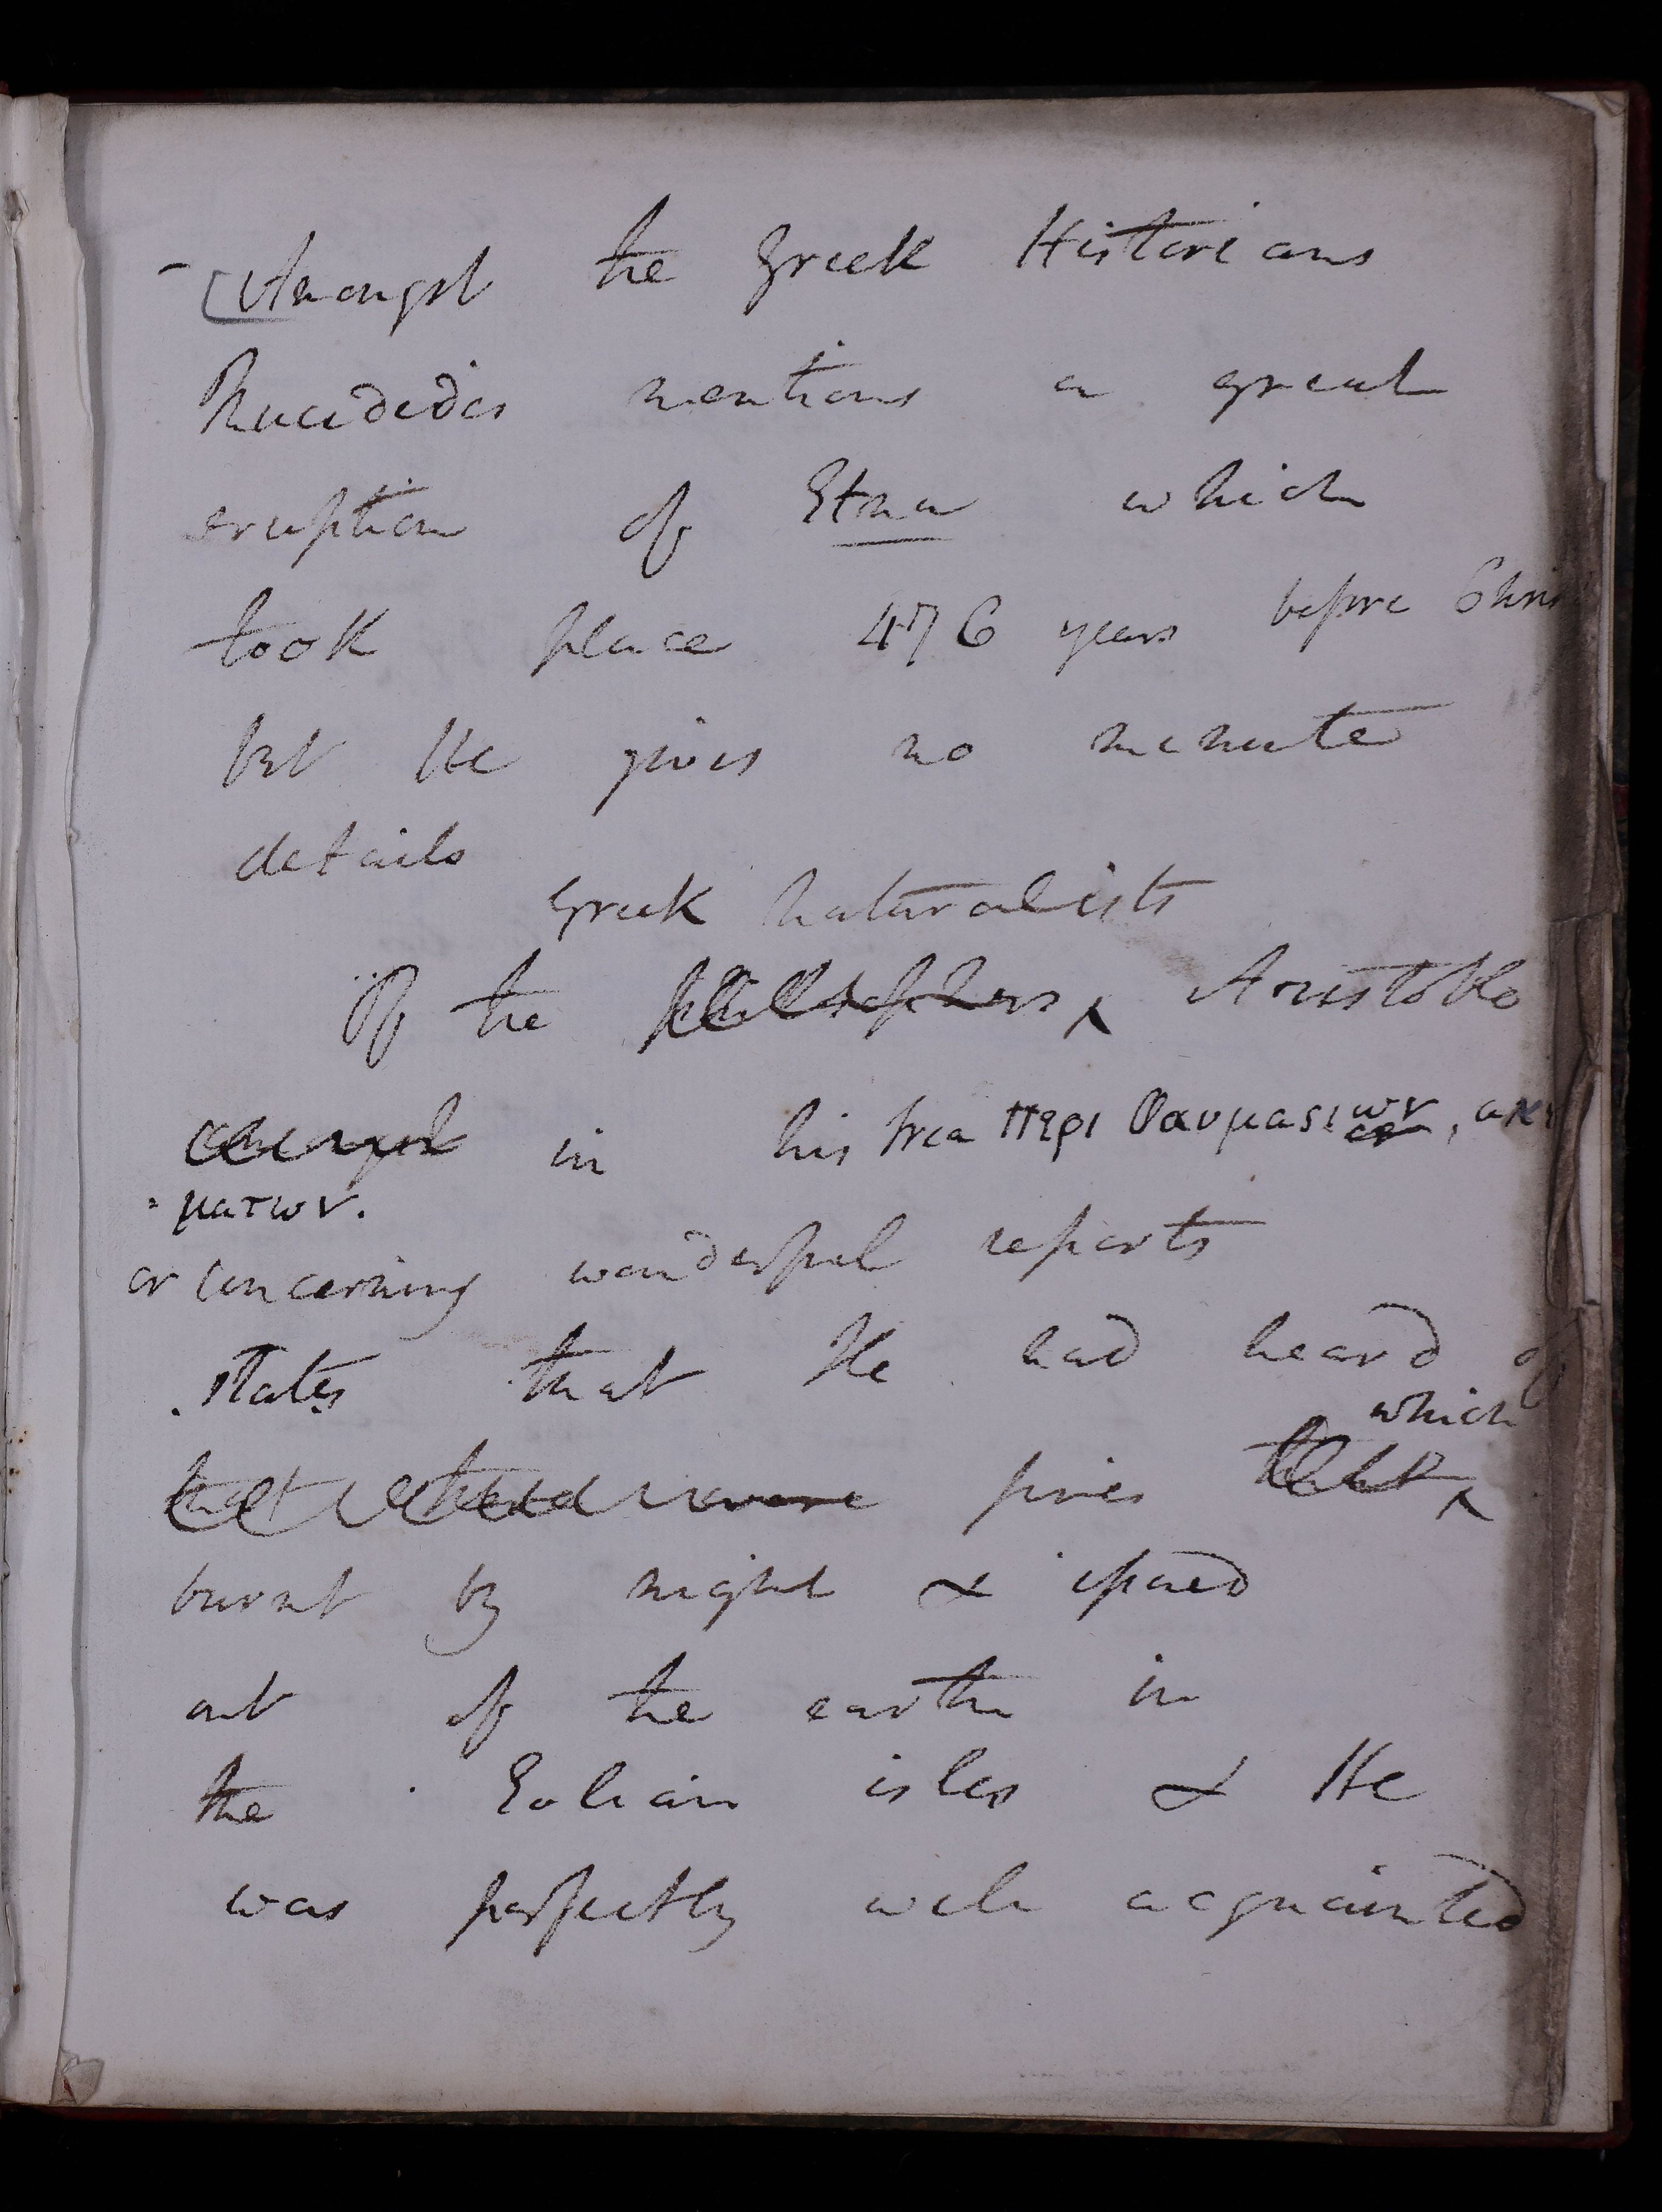 - [Amongst the Greek Historians
Thucidides mentions a great
eruption of Etna which
took place 476 years before Chris
but He gives no minute
details
Greek naturalists
Of the philosophers ‸ Aristotle
amongst in his trea Περι θαυμασιων, ακι
= ματων.
or concerning wonderful reports
states that He had heard of
which
that there were fires that ‸
burnt by night & issued
out of the earth in
the Eolian isles & He
was perfectly well acquainted